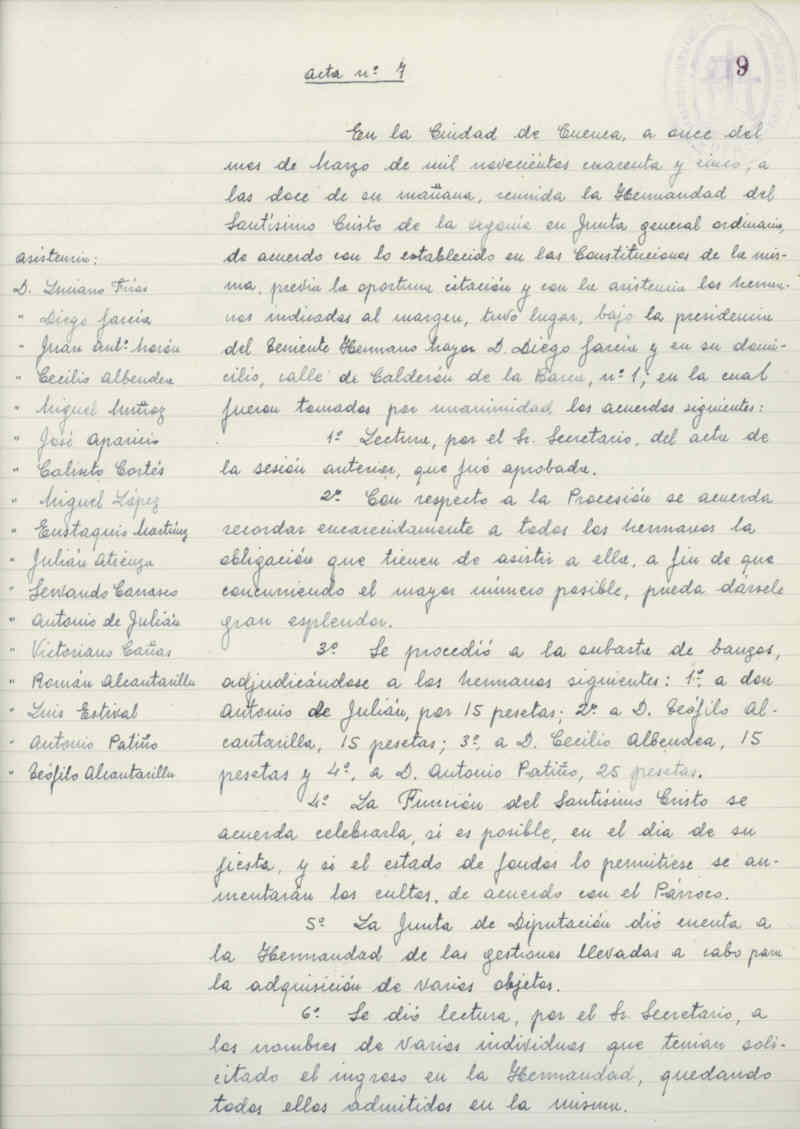 9
Acta nº 7
En la Ciudad de Cuenca, a once del
mes de Marzo de mil novecientos cuarenta y cinco, a
las doce de su mañana, reunida la Hermandad del
Santísimo Cristo de la Agonía en Junta general ordinaria,
de acuerdo con lo establecido en las Constituciones de la mis-
ma, previa la oportuna citación y con la asistencia los herma-
nos indicados al margen, tuvo lugar, bajo la presidencia
del Teniente Hermano Mayor D. Diego García y en su domi-
cilio, calle de Calderón de la Barca, nº 1, en la cual
fueron tomados por unanimidad los acuerdos siguientes:
1º Lectura, por el Sr. Secretario, del acta de
la sesión anterior, que fué aprobada.
2º Con respecto a la Procesión se acuerda
recordar encarecidamente a todos los hermanos la
obligación que tienen de asistir a ella, a fin de que
concurriendo el mayor número posible, pueda dársele
gran esplendor.
3º Se procedió a la subasta de banzos,
adjudicándose a los hermanos siguientes: 1º a don
Antonio de Julián, por 15 pesetas; 2º a D. Teófilo Al-
cantarilla, 15 pesetas; 3º, a D. Cecilio Albendea, 15
pesetas y 4º, a D. Antonio Patiño, 25 pesetas.
4º La Función del Santísimo Cristo se
acuerda celebrarla, si es posible, en el dia de su
fiesta, y si el estado de fondos lo permitiese se au-
mentarán los cultos, de acuerdo con el Párroco.
5º La Junta de Diputación dió cuenta a
la Hermandad de las gestiones llevadas a cabo para
la adquisición de varios objetos.
6º Se dió lectura, por el Sr. Secretario, a
los nombres de varios individuos que tenian soli-
citado el ingreso en la Hermandad, quedando
todos ellos admitidos en la misma.
Asistencia:
D. Luciano Frías
" Diego García
" Juan Antº Morón
" Cecilio Albendea
" Miguel Muñoz
" José Aparicio
" Calixto Cortés
" Miguel López
" Eustaquio Martínez
" Julián Atienza
" Servando Carrasco
" Antonio de Julián
" Victoriano Cañas
" Román Alcantarilla
" Luis Estival
" Antonio Patiño
" Teófilo Alcantarilla